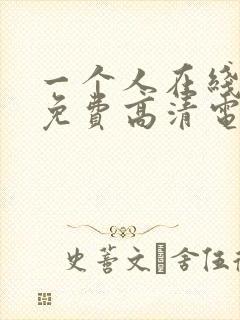 一个人在线
免费高清电
史蒈文 舍伍德